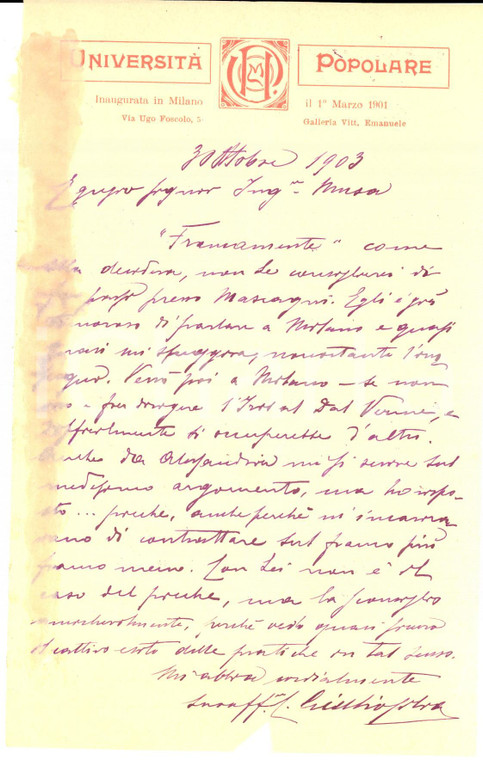 UNIVERSITÀ POPOLARE
Inaugurata in Milano il 1º Marzo 1901
Via Ugo Foscolo, 5 Galleria Vitt. Emanuele
3 Ottobre 1903
Egregio signor Ing.re Musa
"Francamente" come
Ella desidera, non Le consiglierei di
far passi presso Mascagni. Egli è già
di parlare a Milano e quasi
mi sfuggiva, nonostante
Verrà poi a Milano – se non
– per dirigere l'Iris al Dal Verme, e
difficilmente si occuperebbe d'altro.
Anche da Alessandria mi si scrive sul
medesimo argomento, ma ho rispo-
sto ... picche, anche perchè m'incarica-
vano di contrattare sul franco più
franco meno. Con Lei non è il
caso del picche, ma la sconsiglio
amichevolmente, perchè vedo quasi sicuro
il cattivo esito delle pratiche in tal senso.
Mi abbia cordialmente
suo aff.